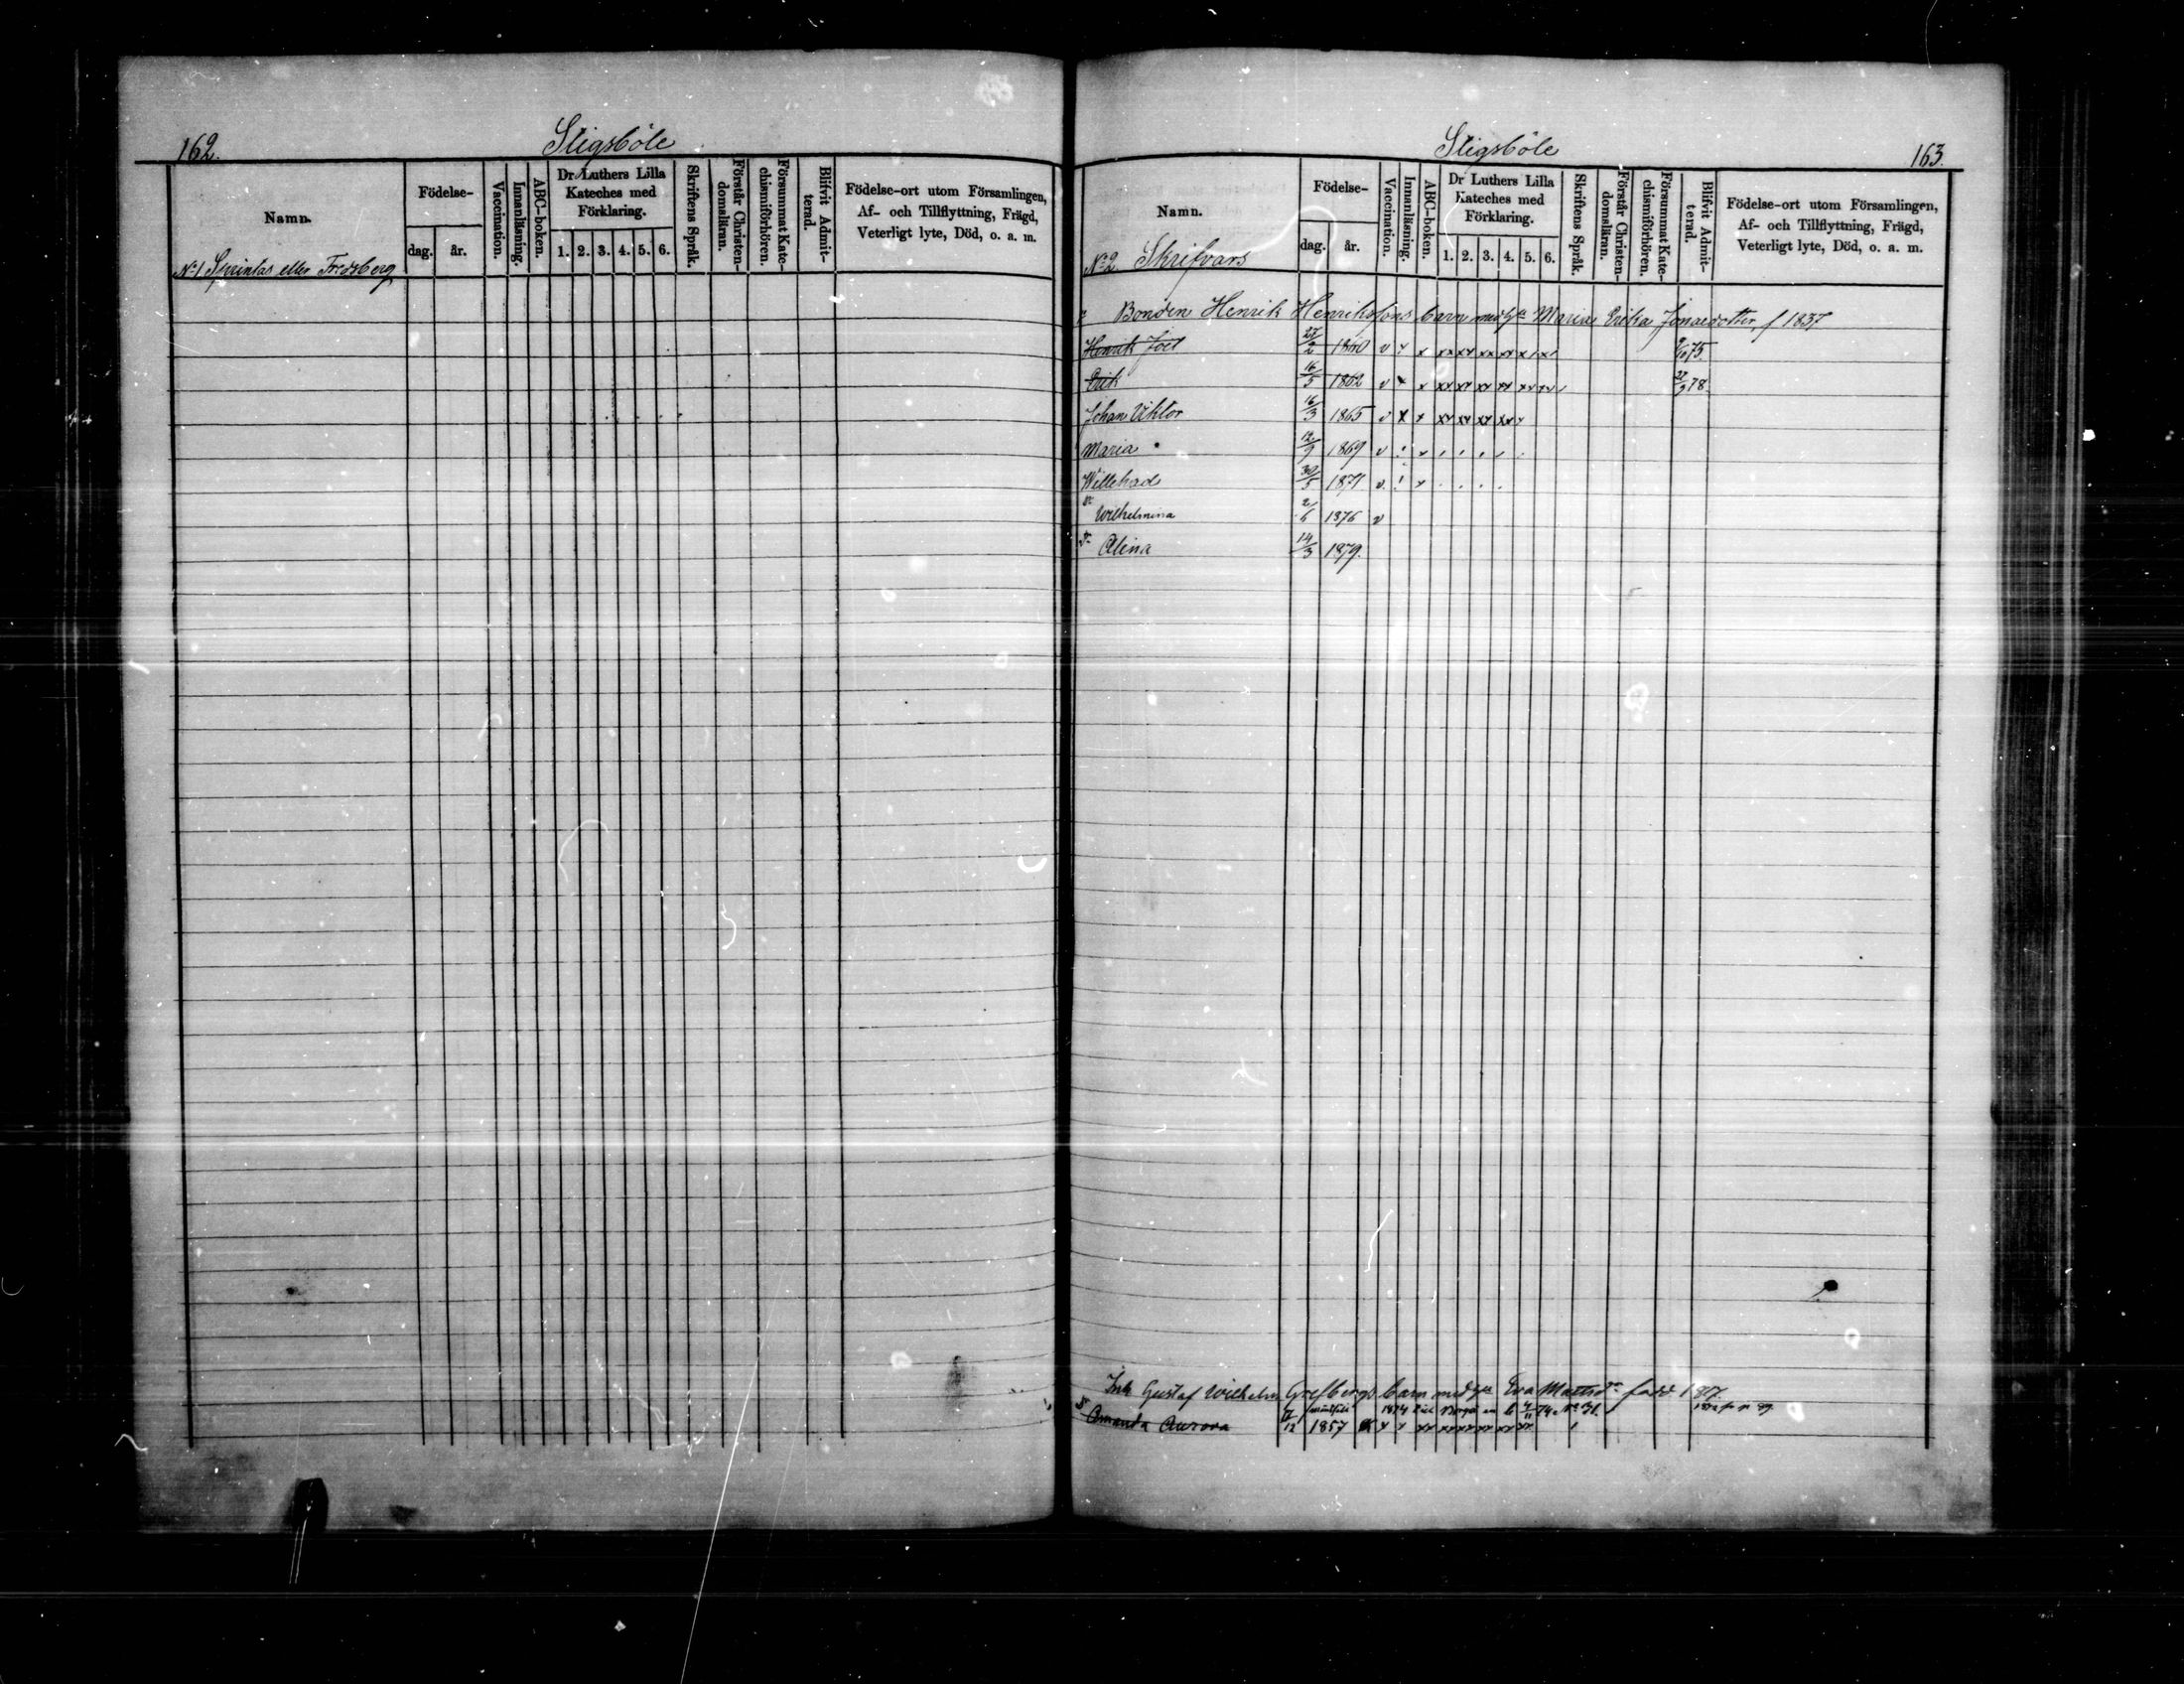 162.
Stigsböle
Namn.
Födelse-
dag. år.
Vaccination.
Innanläsning.
ABC-boken.
Dr Luthers Lilla
Kateches med
Förklaring.
1. 2. 3. 4. 5. 6.
Skriftens Språk.
Förstår Christen-
domsläran.
Försummat Kate-
chismiförhören.
Blifvit Admit-
terad.
Födelse-ort utom Församlingen,
Af- och Tillflyttning, Frägd,
Veterligt lyte, Död, o. a. m.
No 1 Sprintas eller Fredsberg
Stigsböle
163.
Namn.
Födelse-
dag. år.
Vaccination.
Innanläsning.
ABC-boken.
Dr Luthers Lilla
Kateches med
Förklaring.
1. 2. 3. 4. 5. 6.
Skriftens Språk.
Förstår Christen-
domsläran.
Försummat Kate-
chismiförhören.
Blifvit Admit-
terad.
Födelse-ort utom Församlingen,
Af- och Tillflyttning, Frägd,
Veterligt lyte, Död, o. a. m.
No 2 Skrifvars
Bonden Henrik Henrikssons barn med h. Maria Erika Jonaedotter, f 1837
Henrik Joel 25/2 1860 v 75.
Erik 16/5 1862 v 78.
Johan Viktor 16/3 1865 v
Maria 12/9 1869 v
Willehad 30/5 1871 v.
Wilhelmina 2/6 1876 v
Alina 14/3 1879.
Inh Gustaf Wilhelm Grefbergs barn med h Eva Mattsdr född 1817.
Amanda Aurora 12 1857